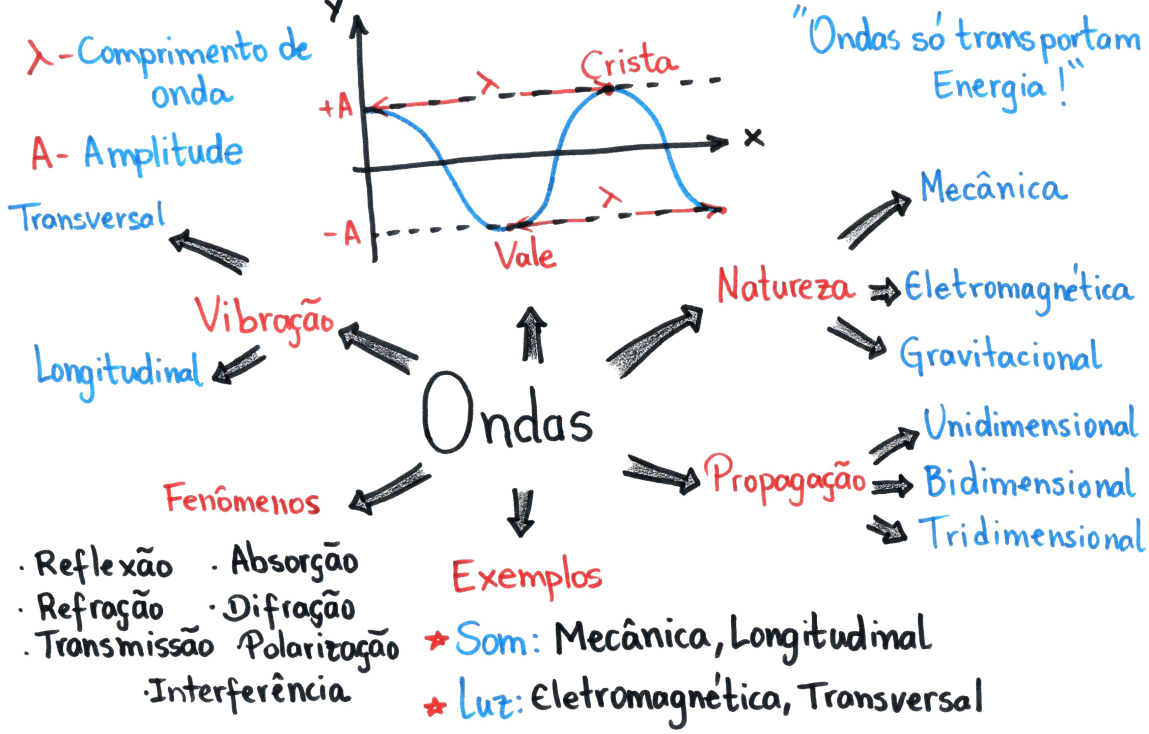 λ - Comprimento de
onda
A - Amplitude
y
+A
λ
Crista
x
λ
-A
Vale
"Ondas só transportam
Energia!"
Transversal
Vibração
Longitudinal
Natureza
Mecânica
Eletromagnética
Gravitacional
Ondas
Propagação
Unidimensional
Bidimensional
Tridimensional
Fenômenos
· Reflexão · Absorção
· Refração · Difração
· Transmissão · Polarização
· Interferência
Exemplos
★ Som: Mecânica, Longitudinal
★ Luz: Eletromagnética, Transversal